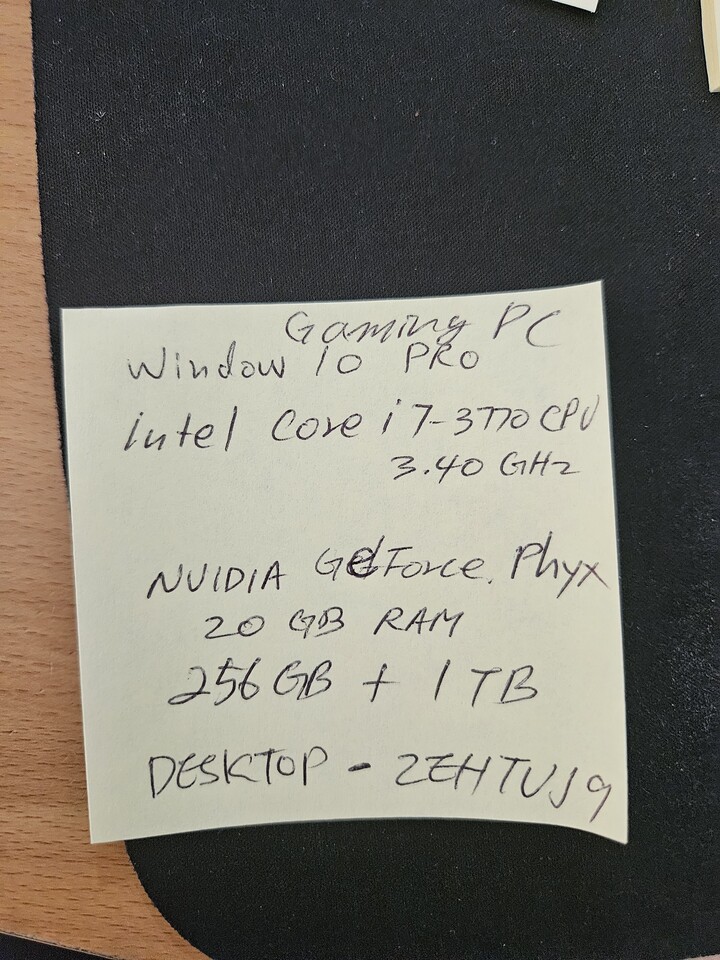 Gaming PC
Window 10 PRO
Intel Core i7-3770 CPU
3.40 GHz
NVIDIA GeForce. Phyx
20 GB RAM
256 GB + 1 TB
DESKTOP - 2EHTUJ9